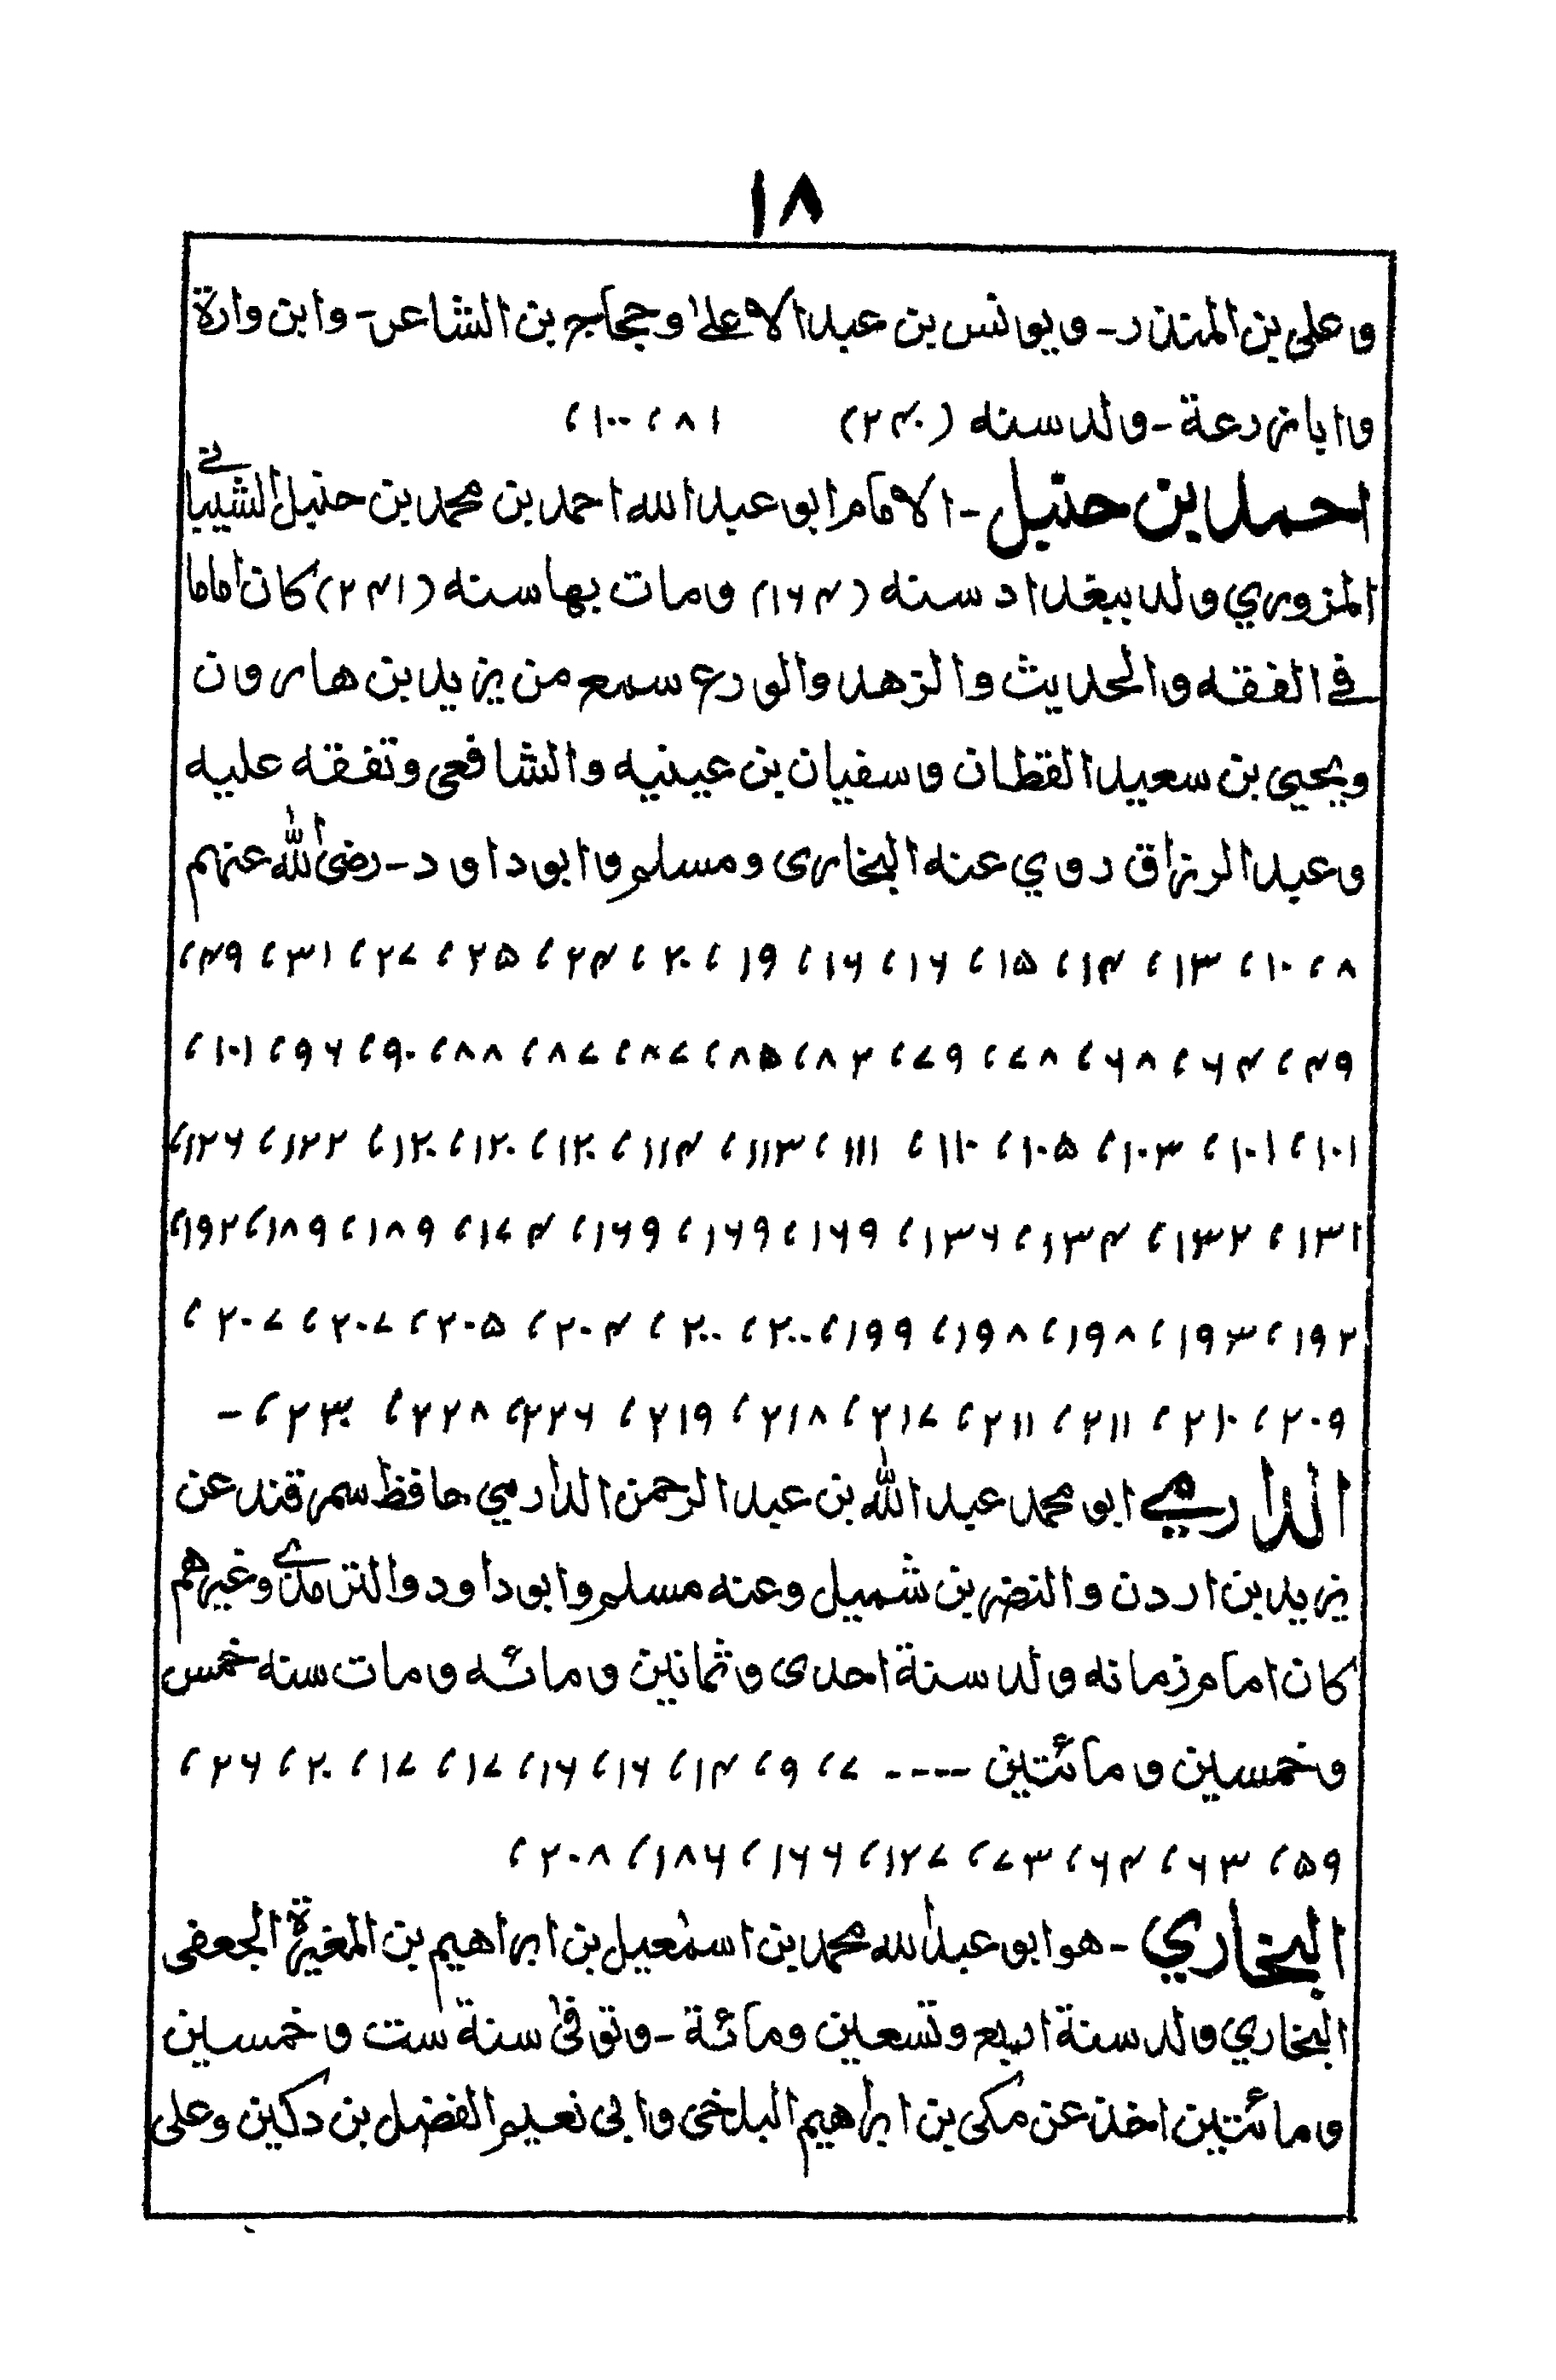 ۱۸
وعلی بن المنذر - ویونس بن عبدالاعلیٰ وحجاج بن الشاعر - وابن وارة
وابازرعة - ولد سنه (۲۴۰) ۸۱، ۱۰۰،
احمد بن حنبل - الامام ابو عبد الله احمد بن محمد بن حنبل الشیبانے
المزوري ولد ببغداد سنه (۱۶۴) ومات بها سنه (۲۴۱) کان اماما
فے الفقه والحدیث والزهد والورع سمع من یزید بن هارون
ویحیی بن سعید القطان وسفیان بن عینیه والشافعی وتفقه علیه
وعبد الرزاق روي عنه البخاری ومسلم وابو داود - رضی الله عنهم
۸، ۱۰، ۱۳، ۱۴، ۱۵، ۱۶، ۱۶، ۱۹، ۲۰، ۲۴، ۲۵، ۲۷، ۳۱، ۴۹،
۴۹، ۶۴، ۶۸، ۷۸، ۷۹، ۸۲، ۸۵، ۸۷، ۸۷، ۸۸، ۹۰، ۹۶، ۱۰۱،
۱۰۱، ۱۰۱، ۱۰۳، ۱۰۵، ۱۱۰، ۱۱۱، ۱۱۳، ۱۱۴، ۱۲۰، ۱۲۰، ۱۲۰، ۱۲۲، ۱۲۶،
۱۳۱، ۱۳۲، ۱۳۴، ۱۳۶، ۱۶۹، ۱۶۹، ۱۶۹، ۱۷۴، ۱۸۹، ۱۸۹، ۱۹۲،
۱۹۲، ۱۹۳، ۱۹۸، ۱۹۸، ۱۹۹، ۲۰۰، ۲۰۰، ۲۰۴، ۲۰۵، ۲۰۷، ۲۰۷،
۲۰۹، ۲۱۰، ۲۱۱، ۲۱۱، ۲۱۷، ۲۱۸، ۲۱۹، ۲۲۶، ۲۲۸، ۲۳۰، -
الدارمے ابو محمد عبد الله بن عبد الرحمن الدارمي حافظ سمرقند عن
یزید بن اردن والنضر بن شمیل وعنه مسلم وابو داود والترمذے وغیرهم
کان امام زمانه ولد سنة احدی وثمانین ومائه ومات سنه خمس
وخمسین ومائتین ---- ۷، ۹، ۱۴، ۱۶، ۱۶، ۱۷، ۱۷، ۲۰، ۲۶،
۵۹، ۶۳، ۶۴، ۷۳، ۱۲۷، ۱۶۶، ۱۸۶، ۲۰۸،
البخاري - هو ابو عبد الله محمد بن اسمٰعیل بن ابراهیم بن المغیرة الجعفی
البخاري ولد سنة اربع وتسعین ومائة - وتوفیٰ سنة ست وخمسین
ومائتین اخذ عن مکی بن ابراهیم البلخی وابی نعیم الفضل بن دکین وعلی